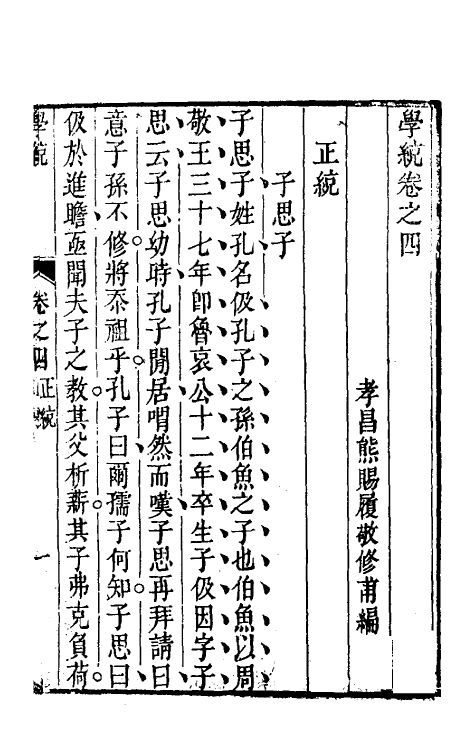 學統卷之四
孝昌熊賜履敬修甫編
正統
子思子
子思子姓孔名伋孔子之孫伯魚之子也伯魚以周
敬王三十七年卽魯哀公十二年卒生子伋因字子
思云子思幼時孔子閒居喟然而嘆子思再拜請曰
意子孫不修將忝祖乎孔子曰爾孺子何知子思曰
伋於進瞻亟聞夫子之教其父析薪其子弗克負荷
學統
卷之四 正統
一